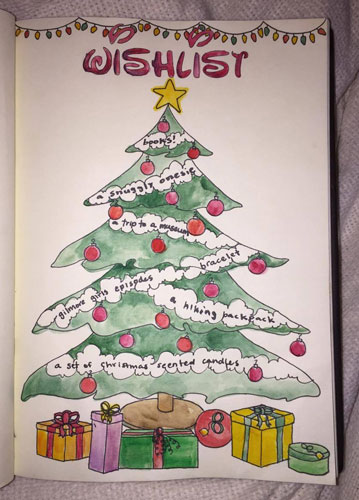 WISHLIST
books!
a snuggly onesie
a trip to a museum
bracelet
gilmore girls episodes
a hiking backpack
a set of christmas scented candles
8